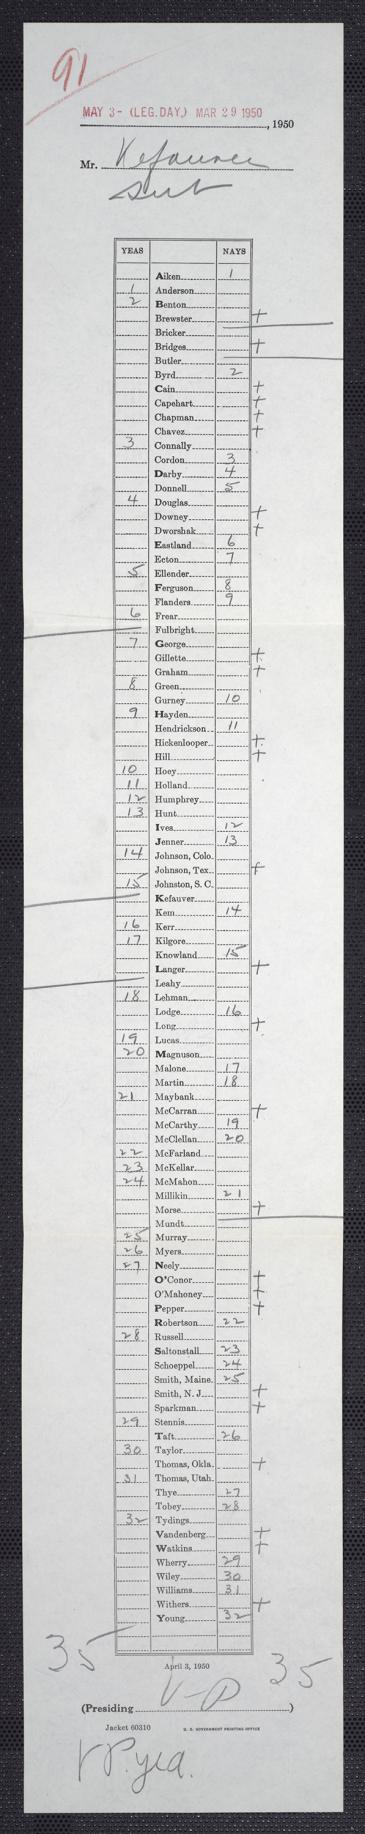 91
MAY 3 - (LEG. DAY.) MAR 29 1950
, 1950
Mr. Kefauver
Sub
YEAS NAYS
Aiken 1
1 Anderson
2 Benton
Brewster +
Bricker
Bridges +
Butler
Byrd 2
Cain +
Capehart +
Chapman +
Chavez +
3 Connally
Cordon 3
Darby 4
Donnell 5
4 Douglas
Downey +
Dworshak +
Eastland 6
Ecton 7
5 Ellender
Ferguson 8
Flanders 9
6 Frear
Fulbright
7 George
Gillette +
Graham +
8 Green
Gurney 10
9 Hayden
Hendrickson 11
Hickenlooper +
Hill +
10 Hoey
11 Holland
12 Humphrey
13 Hunt
Ives 12
Jenner 13
14 Johnson, Colo.
Johnson, Tex. +
15 Johnston, S. C.
Kefauver
Kem 14
16 Kerr
17 Kilgore
Knowland 15
Langer +
Leahy
18 Lehman
Lodge 16
Long +
19 Lucas
20 Magnuson
Malone 17
Martin 18
21 Maybank
McCarran +
McCarthy 19
McClellan 20
22 McFarland
23 McKellar
24 McMahon
Millikin 21
Morse +
Mundt
25 Murray
26 Myers
27 Neely
O'Conor +
O'Mahoney +
Pepper +
Robertson 22
28 Russell
Saltonstall 23
Schoeppel 24
Smith, Maine 25
Smith, N. J. +
Sparkman +
29 Stennis
Taft 26
30 Taylor
Thomas, Okla. +
31 Thomas, Utah
Thye 27
Tobey 28
32 Tydings
Vandenberg +
Watkins +
Wherry 29
Wiley 30
Williams 31
Withers +
Young 32
35 35
April 3, 1950
(Presiding V-P)
Jacket 60310 U. S. GOVERNMENT PRINTING OFFICE
V P. yea.